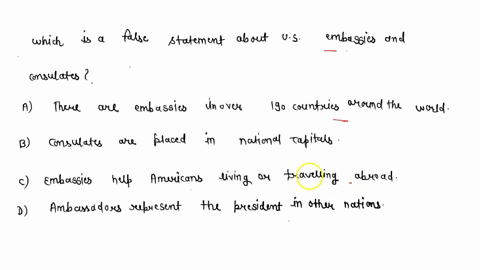 which is a false statement about U.S. embassies and
consulates?
A) There are embassies in over 190 countries around the world.
B) Consulates are placed in national capitals.
C) Embassies help Americans living or travelling abroad.
D) Ambassadors represent the president in other nations.